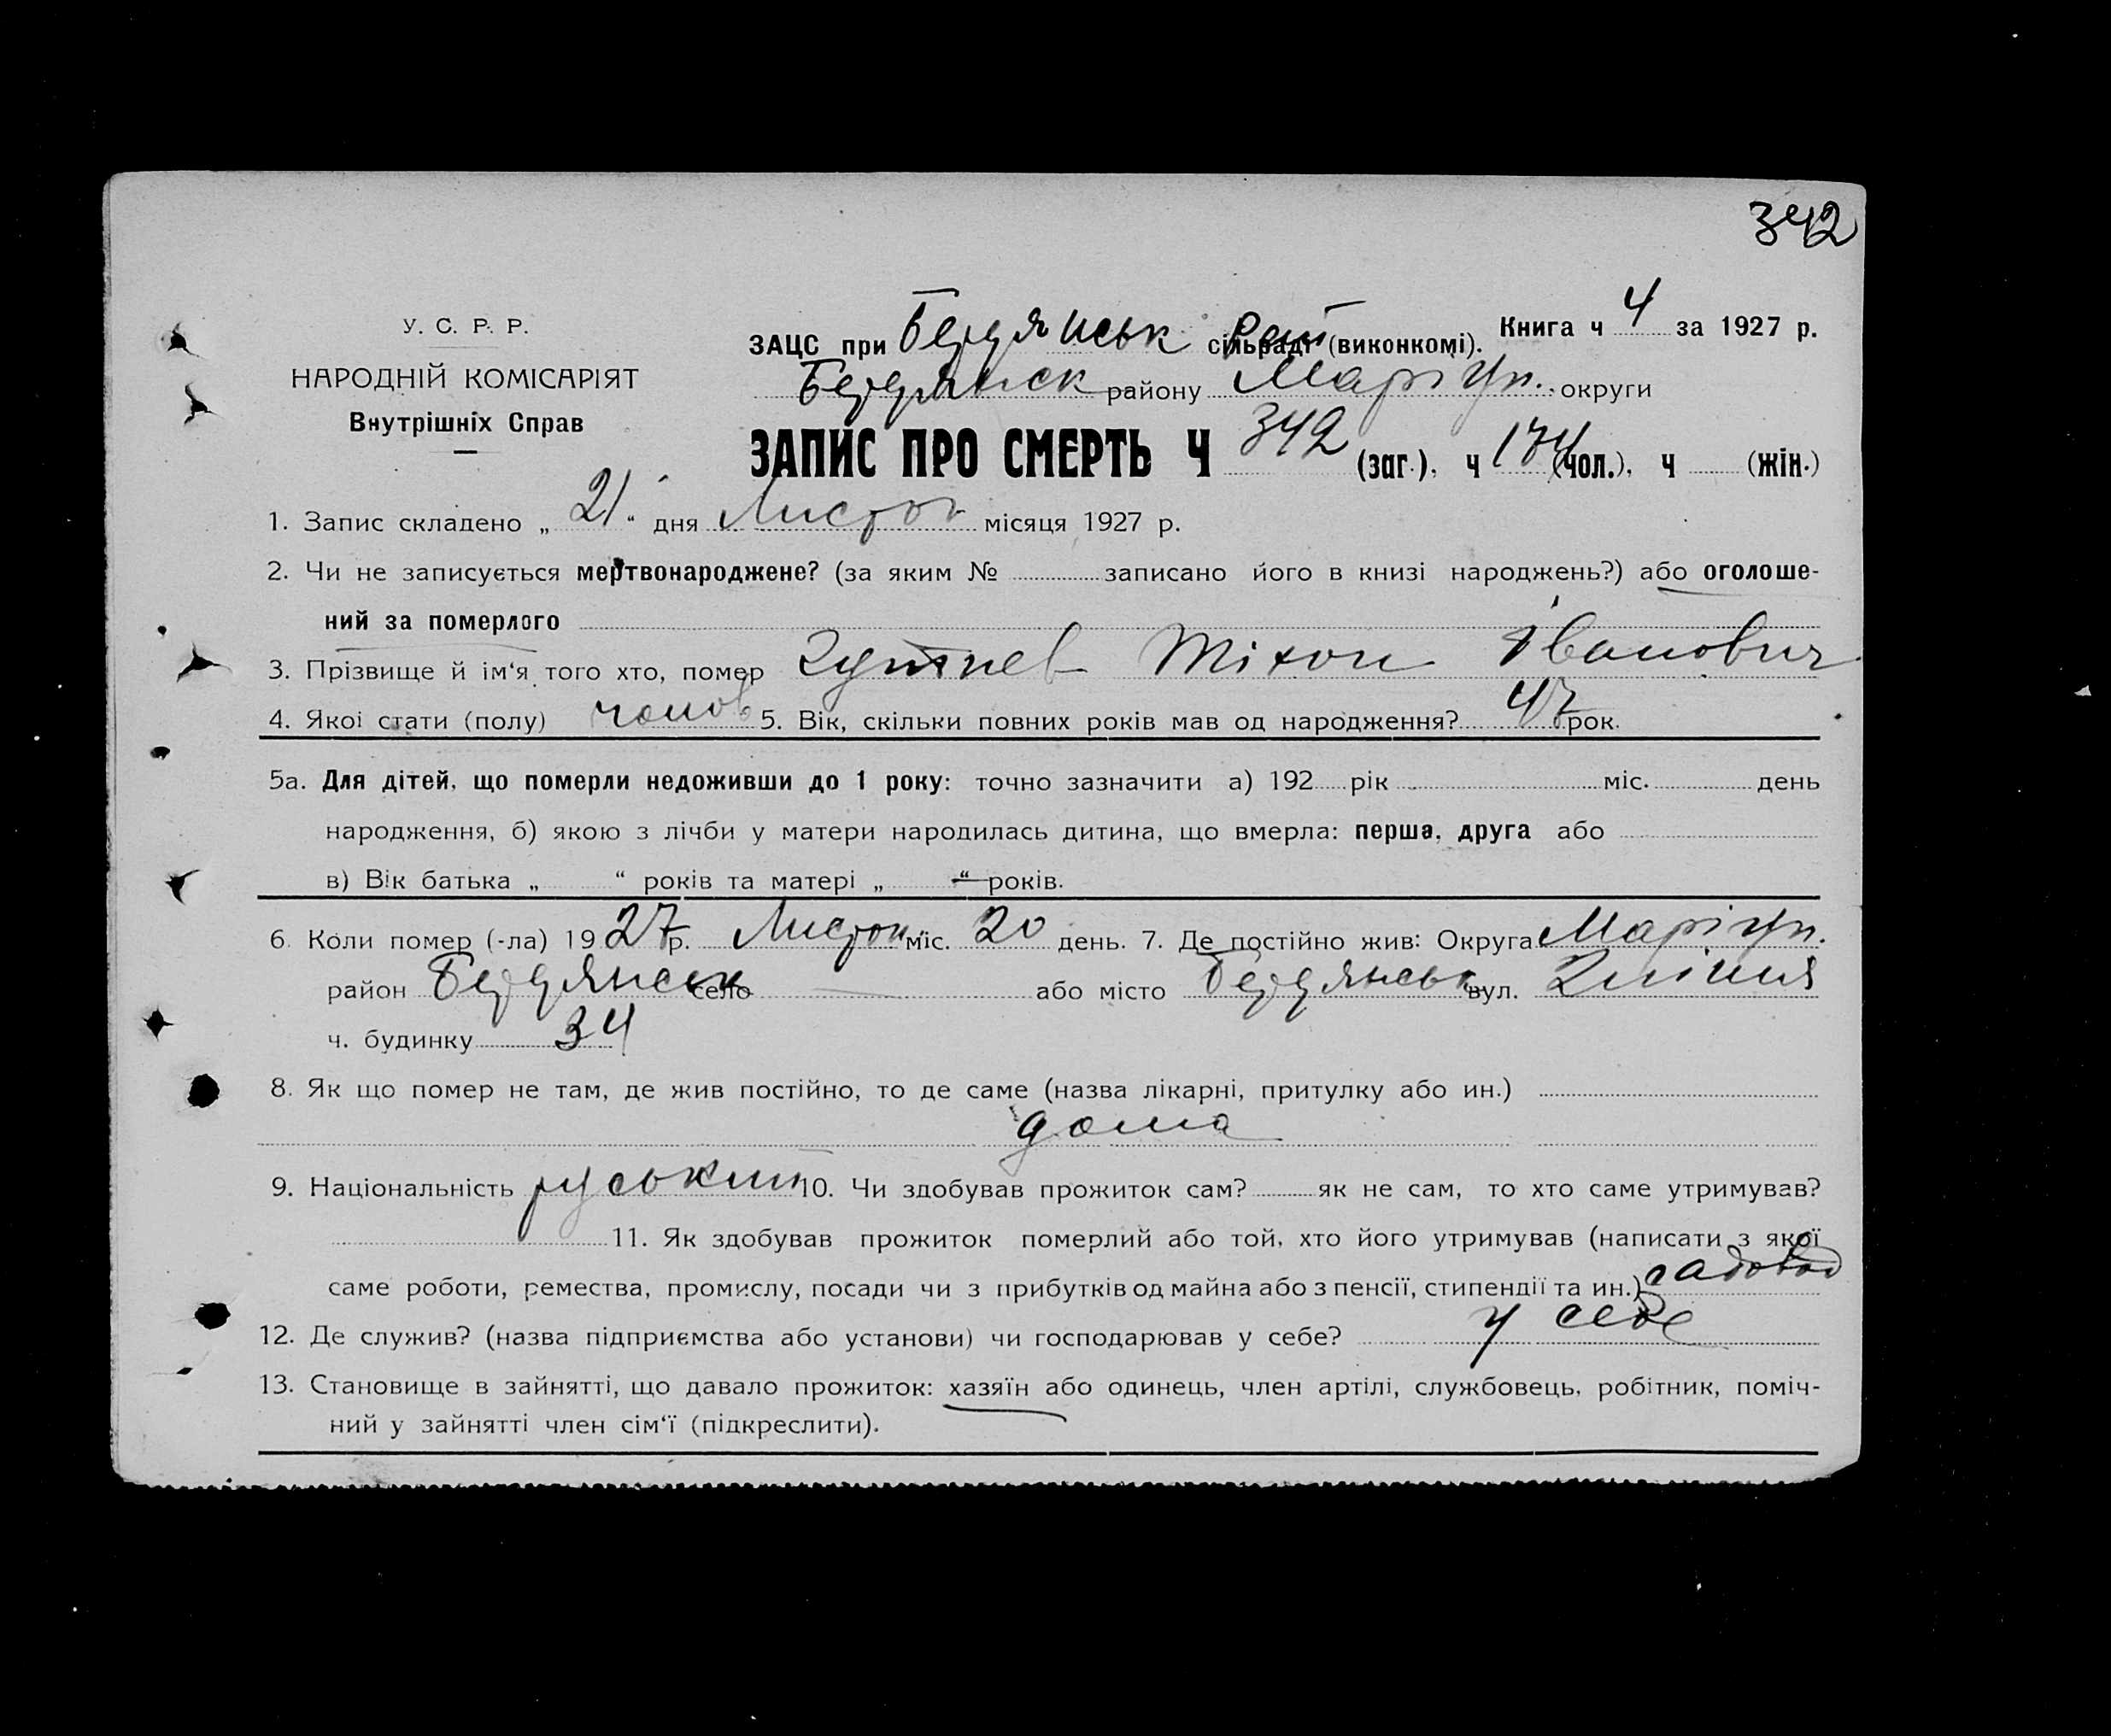 342
У. С. Р. Р.
НАРОДНІЙ КОМІСАРІЯТ
Внутрішніх Справ
ЗАЦС при Бердянськ сільраді (виконкомі). Книга ч 4 за 1927 р.
Бердянск району Маріуп. округи
ЗАПИС ПРО СМЕРТЬ Ч 342 (заг.), ч 174 (чол.), ч (жін.)
1. Запис складено „ 21 “ дня Листоп місяця 1927 р.
2. Чи не записується мертвонароджене? (за яким № записано його в книзі народжень?) або оголоше-
ний за померлого
3. Прізвище й ім‘я того хто, помер Тіхон Іванович
4. Якої стати (полу) чолов 5. Вік, скільки повних років мав од народження? 47 рок.
5а. Для дітей, що померли недоживши до 1 року: точно зазначити а) 192 рік міс. день
народження, б) якою з лічби у матери народилась дитина, що вмерла: перша, друга або
в) Вік батька „ “ років та матері „ “ років.
6. Коли помер (-ла) 1927 р. Листоп міс. 20 день. 7. Де постійно жив: Округа Маріуп.
район Бердянськ село або місто Бердянськ вул.
ч. будинку 34
8. Як що помер не там, де жив постійно, то де саме (назва лікарні, притулку або ин.)
дома
9. Національність руський 10. Чи здобував прожиток сам? як не сам, то хто саме утримував?
11. Як здобував прожиток померлий або той, хто його утримував (написати з якої
саме роботи, ремества, промислу, посади чи з прибутків од майна або з пенсії, стипендії та ин.) садовод
12. Де служив? (назва підприємства або установи) чи господарював у себе? у себе
13. Становище в зайнятті, що давало прожиток: хазяїн або одинець, член артілі, службовець, робітник, поміч-
ний у зайнятті член сім‘ї (підкреслити).